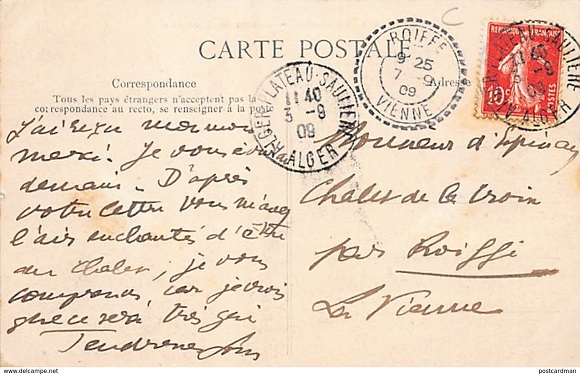 CARTE POSTALE
Correspondance
Tous les pays étrangers n'acceptent pas la
correspondance au recto, se renseigner à la po
Adresse
ROIFFÉ
9 25
7 -9
09
VIENNE
ALGER-PLATEAU-SAULIERE
11 40
3 -9
09
ALGER
ALGER
10c
POSTES
J'ai reçu
merci. Je vous
demain. D'après
votre lettre vous
l'air enchantés d'être
au Chalet, je vous
comprends, car je crois
que ce sera très gai
Tendresses
Monsieur d'Epinay
Chalet de la
par Roiffé
La Vienne
delcampe.net
postcardman